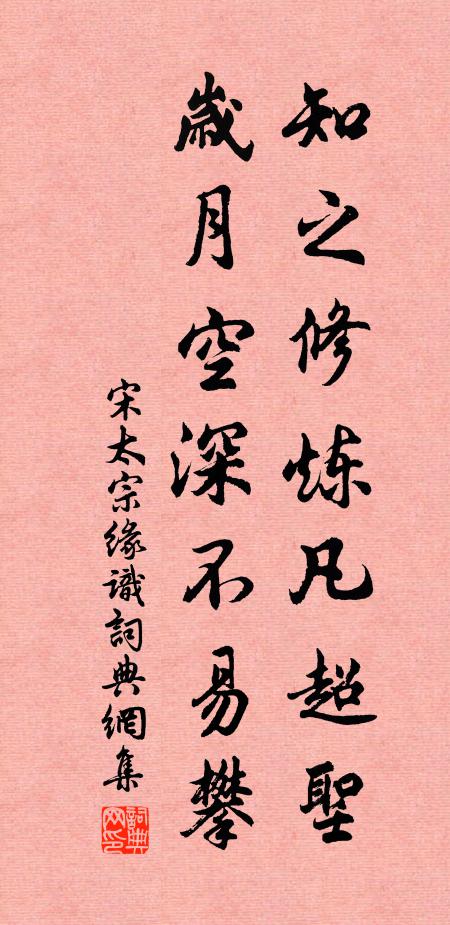 知之修炼凡超聖
歲月空深不易攀
宋太宗緣識詞典網集
詞典网印